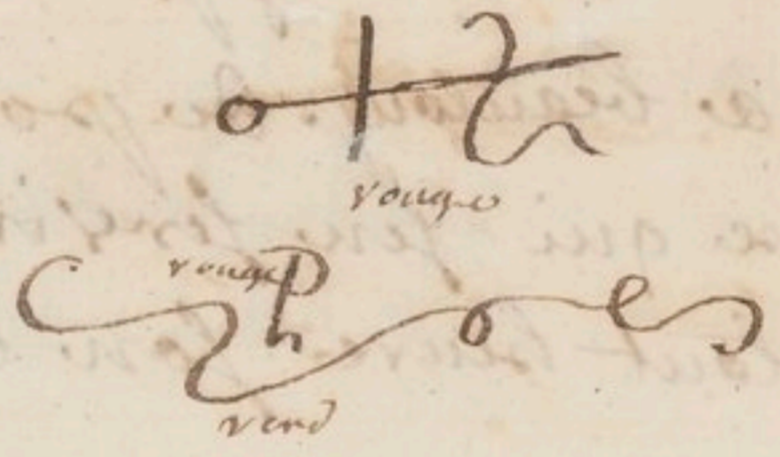 rouge
rouge
verd